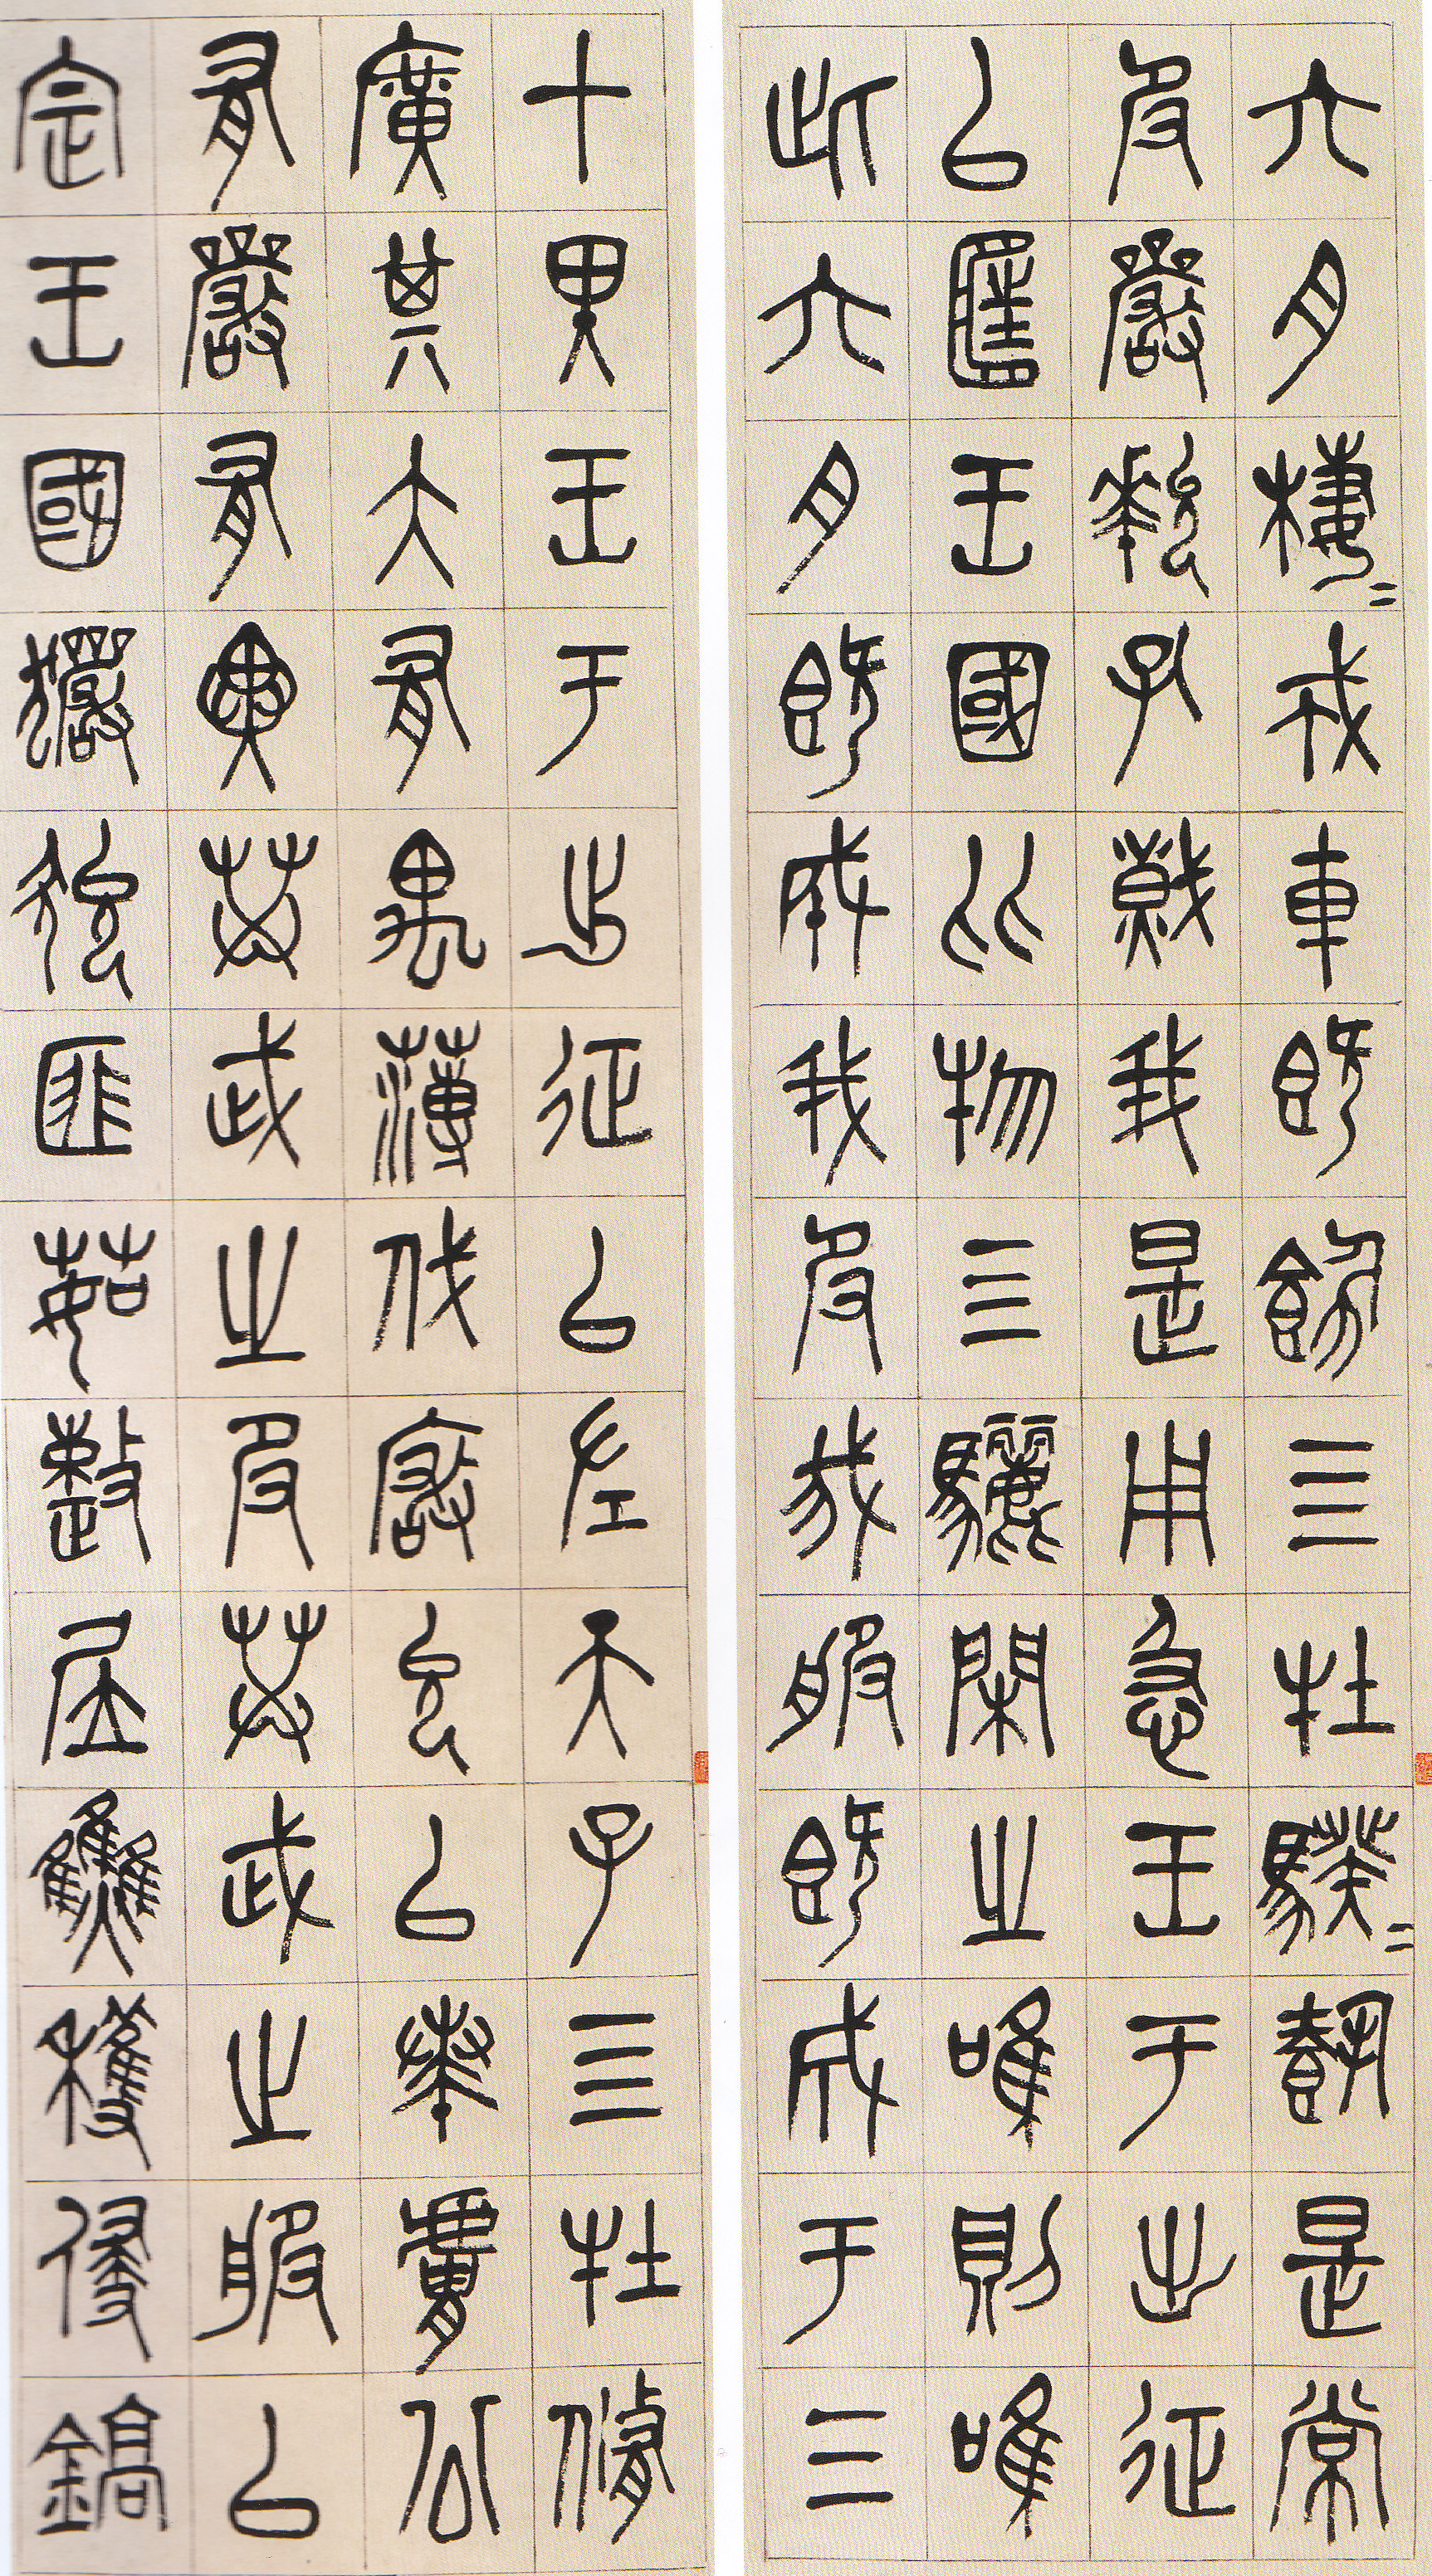 六月棲=戎車既飭四牡騤=載是常
服玁狁孔熾我是用急王于出征
以匡王國比物四驪閑之唯則唯
此六月既成我服我服既成于三
十里王于出征以左天子四牡脩
廣其大有顒薄伐玁狁以奏膚公
有嚴有翼共武之服共武之服以
定王國玁狁匪茹整居焦穫侵鎬